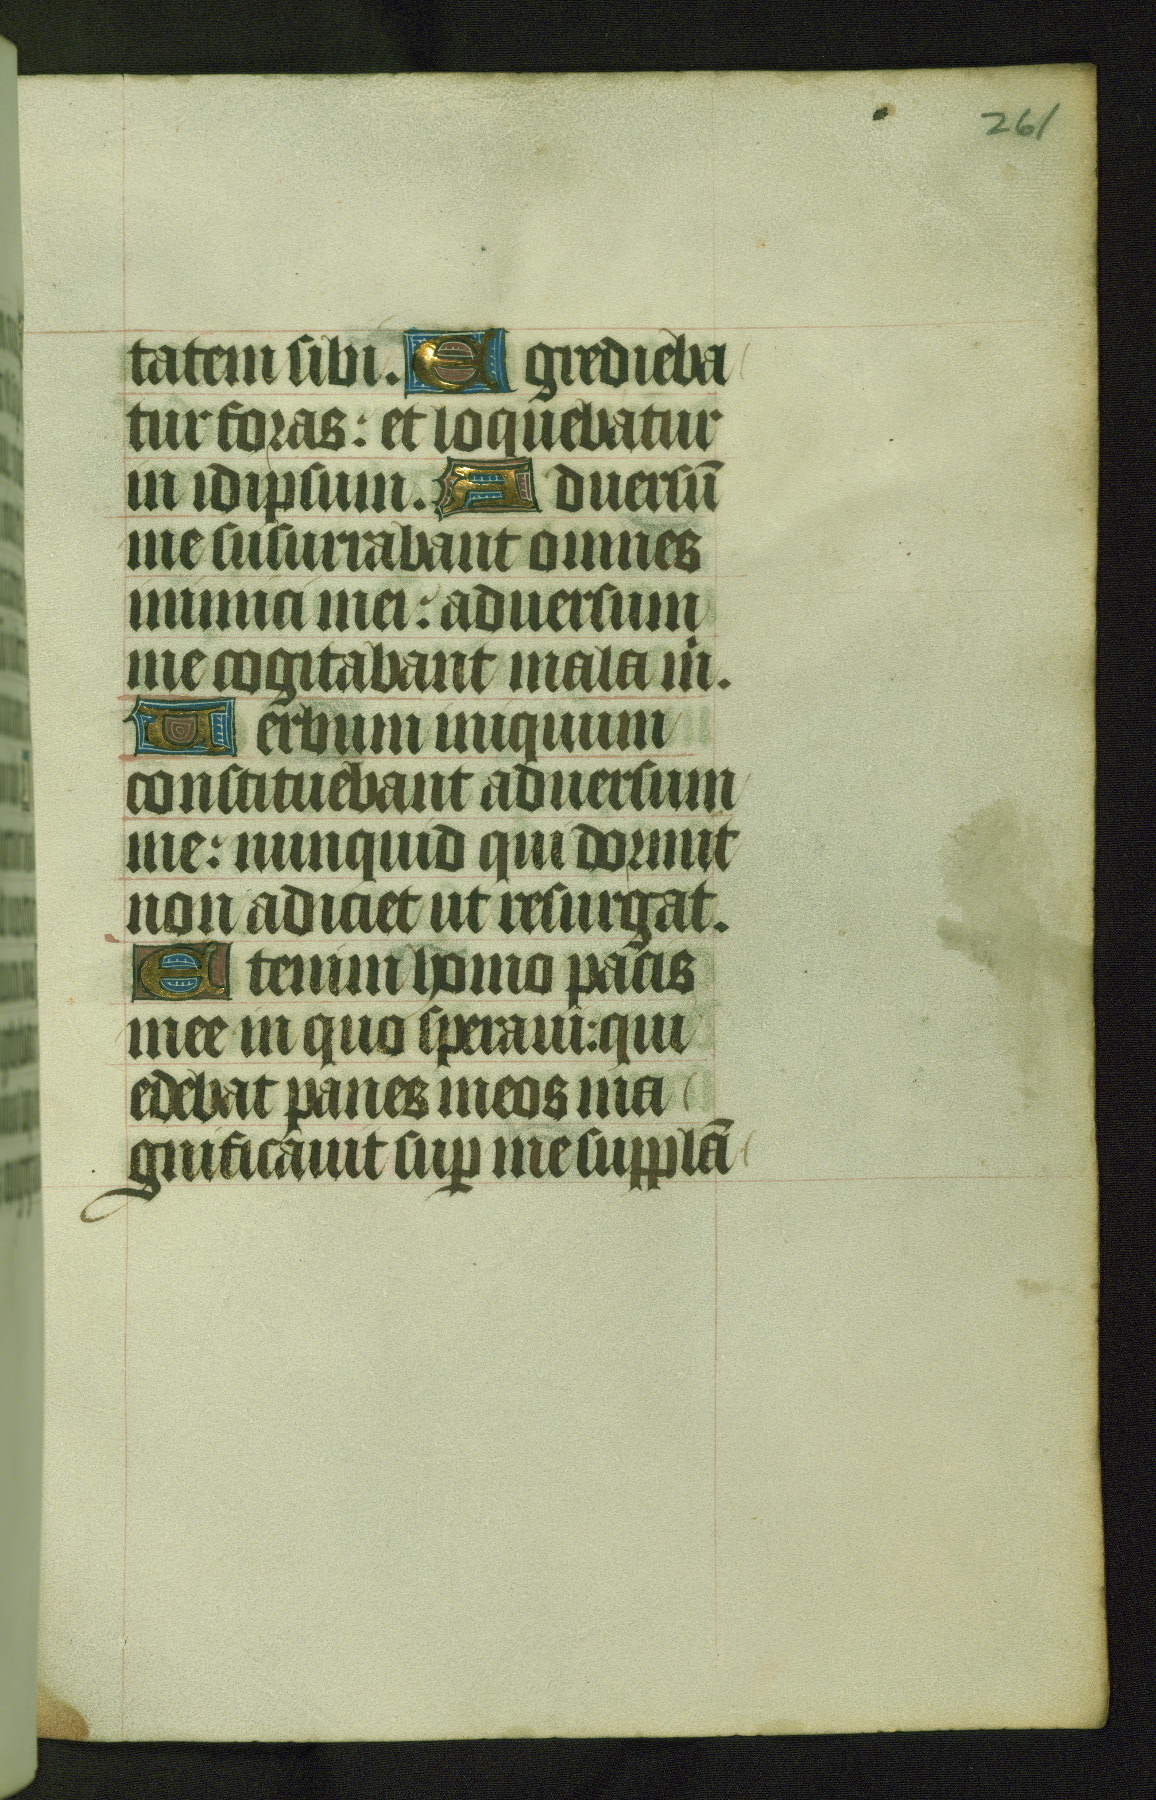 261
tatem sibi. Egredieba
tur foras: et loquebatur
in idipsum. Aduersū
me susurrabant omnes
inimici mei: aduersum
me cogitabant mala m̄.
Verbum iniquum
constituebant aduersum
me: nunquid qui dormit
non adiciet ut resurgat.
Etenim homo pacis
mee in quo speraui: qui
edebat panes meos ma
gnificauit sup̄ me supplā